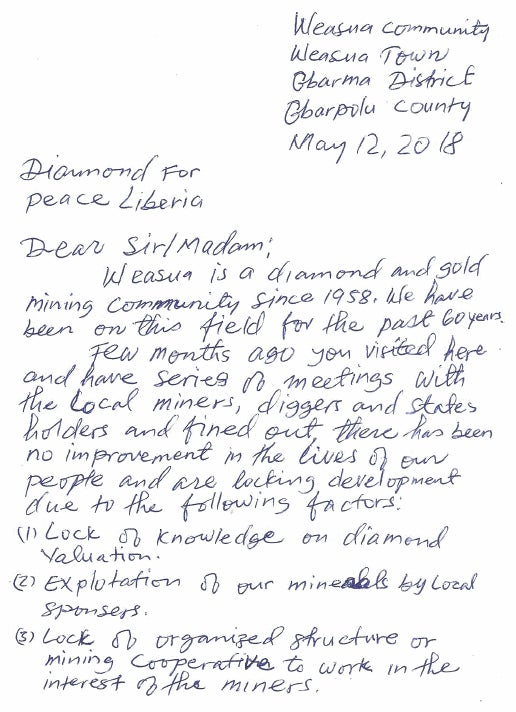 Weasua community
Weasua Town
Gbarma District
Gbarpolu County
May 12, 2018
Diamond For
peace Liberia
Dear Sir/Madam;
Weasua is a diamond and gold
mining community since 1958. We have
been on this field for the past 60 years.
Few months ago you visited here
and have series of meetings with
the Local miners, diggers and states
holders and fined out, there has been
no improvement in the lives of our
people and are locking development
due to the following factors:
(1) Lock of knowledge on diamond
Valuation.
(2) Explotation of our minerals by Local
sponsers.
(3) Lock of organized structure or
mining cooperative to work in the
interest of the miners.